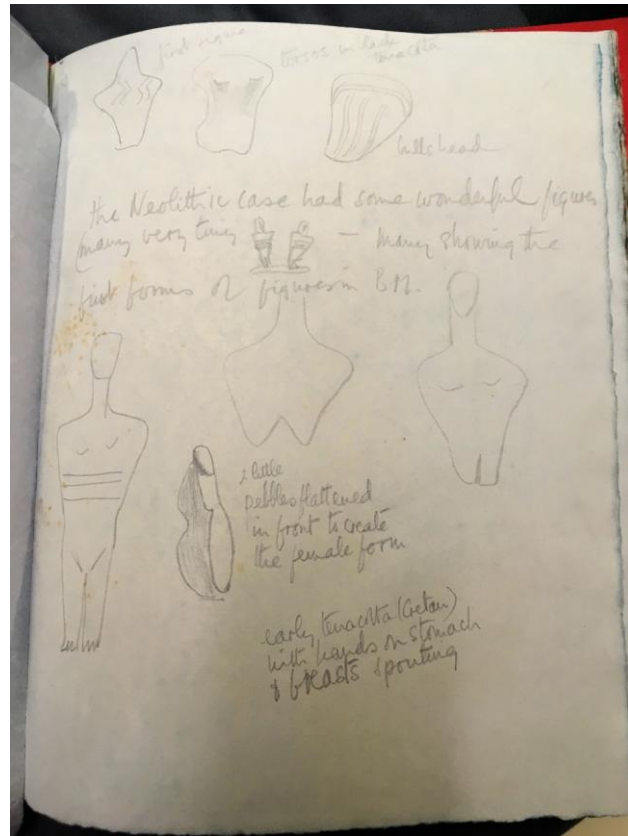 first figure
torsos in
terracotta
bulls head
the Neolithric case had some wonderful figures
(many very tiny — many showing the
first forms of figures in B.M.
2 little
pebbles flattened
in front to create
the female form
early terracotta (Cretan)
with hands on stomach
& breasts spouting